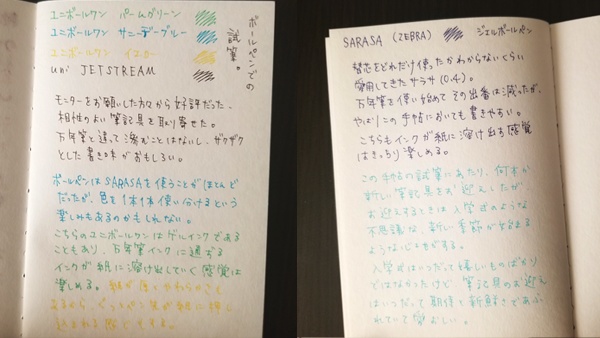 ボールペンでの
試筆。
ユニボールワン パームグリーン
ユニボールワン サニーデーブルー
ユニボールワン イエロー
uni JETSTREAM
モニターをお願いした方々から好評だった、
相性のよい筆記具を取り寄せた。
万年筆と違って滲むことはないし、ザクザク
とした書き味がおもしろい。
ボールペンはSARASAを使うことがほとんど
だったが、色を1本1本使い分けるという
楽しみもあるのかもしれない。
こちらのユニボールワンはゲルインクである
こともあり、万年筆インクに通ずる
インクが紙に溶け出していく感覚は
楽しめる。紙が
ペン先が紙に押し
込まれる
SARASA (ZEBRA) ジェルボールペン
替芯をどれだけ使ったかわからないくらい
愛用してきたサラサ(0.4)。
万年筆を使い始めてその出番は減ったが、
やはりこの手帖においても書きやすい。
こちらもインクが紙に溶け出す感覚
はきっちり楽しめる。
この手帖の試筆にあたり、何本か
新しい筆記具をお迎えしたが、
お迎えするときは入学式のような
不思議な、新しい季節が始まる
ような心もちがする。
入学式はいつだって嬉しいものばかり
ではなかったけど、筆記具のお迎え
はいつだって期待と新鮮さであふ
れていて愛おしい。